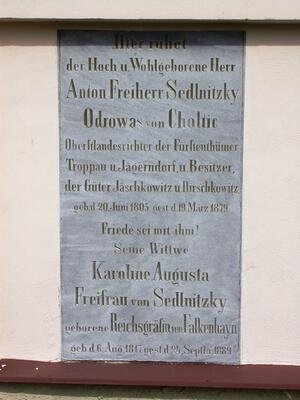 Hier ruhet
der Hoch u. Wohlgeborene Herr
Anton Freiherr Sedlnitzky
Odrowas von Choltic
Oberstlandesrichter der Fürstenthümer
Troppau u. Jägerndorf, u. Besitzer,
der Güter Jaschkowitz u. Dirschkowitz,
geb. d. 20 Juni 1805 gest. d. 19 März 1879
Friede sei mit ihm!
Seine Wittwe
Karoline Augusta
Freifrau von Sedlnitzky
geborene Reichsgräfin von Falkenhayn
geb. d. 6 Aug 1817 gest. d. Septb. 1889